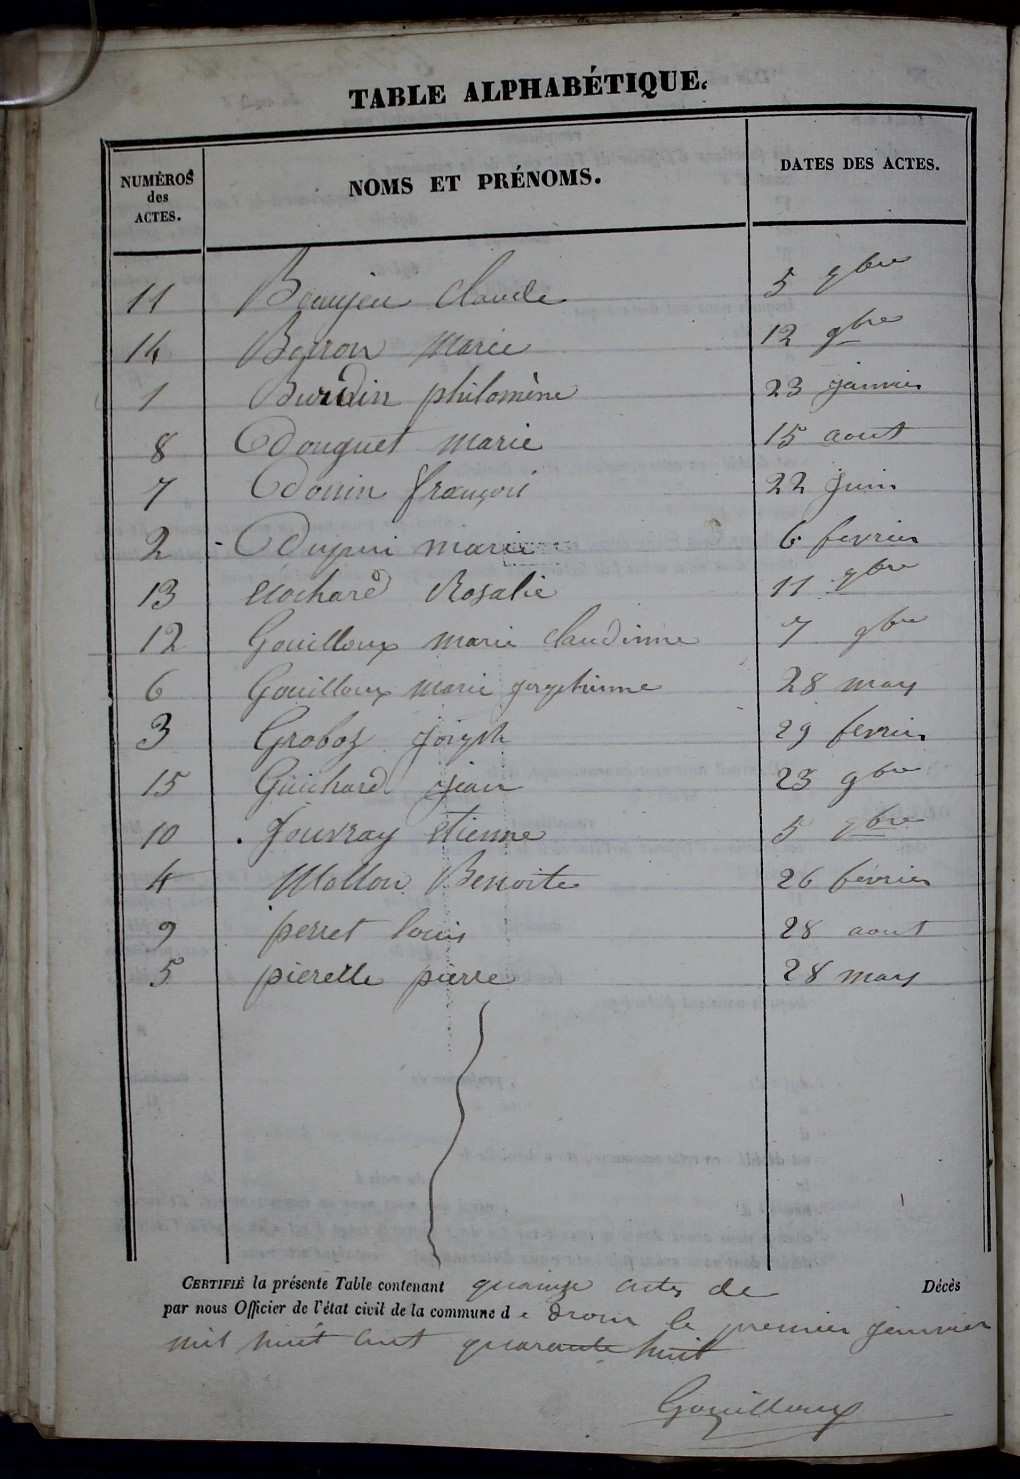 TABLE ALPHABÉTIQUE.
NUMÉROS des ACTES. NOMS ET PRÉNOMS. DATES DES ACTES.
11 Beaujeu Claude 5 9bre
14 Beyron Marie 12 9bre
1 Burdin philomène 23 janvier
8 Douguet marie 15 aout
7 Donin françois 22 juin
2 Dupui marie 6 fevrier
13 Rosalie 11 9bre
12 Gouilloux marie claudinne 7 9bre
6 Gouilloux marie josephinne 28 may
3 Groboz joseph 29 fevrier
15 Guichard jean 23 9bre
10 Jouvray etienne 5 9bre
4 Mollon Benoite 26 février
9 perret louis 28 aout
5 pierelle pierre 28 may
CERTIFIÉ la présente Table contenant quainze actes de Décès
par nous Officier de l'état civil de la commune de drom le premier janvier
mil huit cent quarante huit
Gouilloux